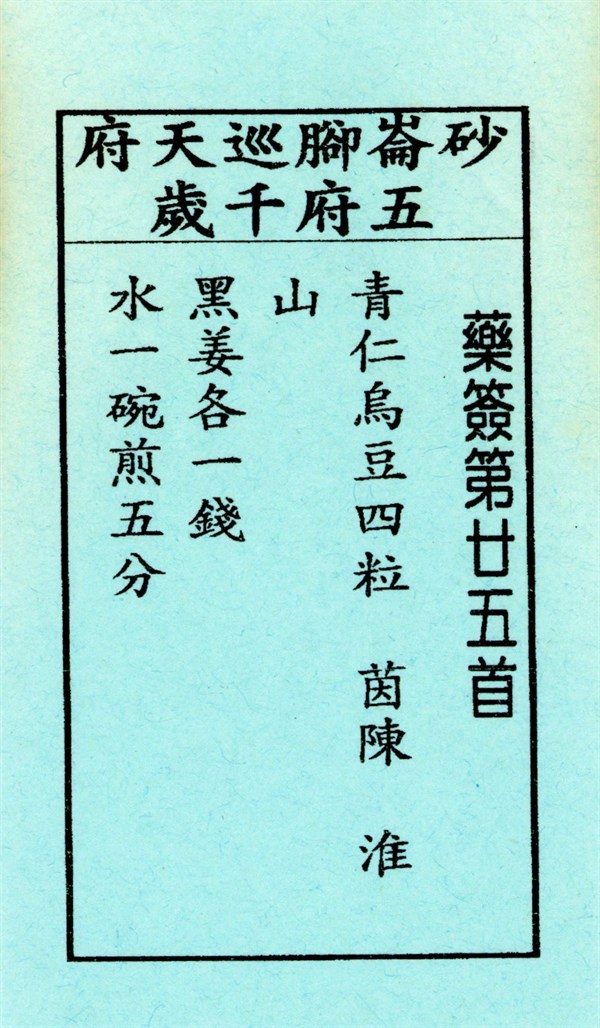 砂崙腳巡天府
五府千歲
藥簽第廿五首
青仁烏豆四粒 茵陳 淮
山
黑姜各一錢
水一碗煎五分